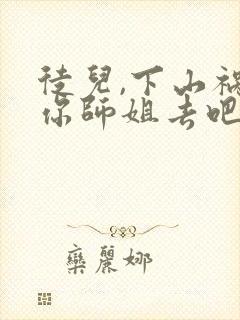 徒兒,下山禍
你師姐去吧
欒麗娜